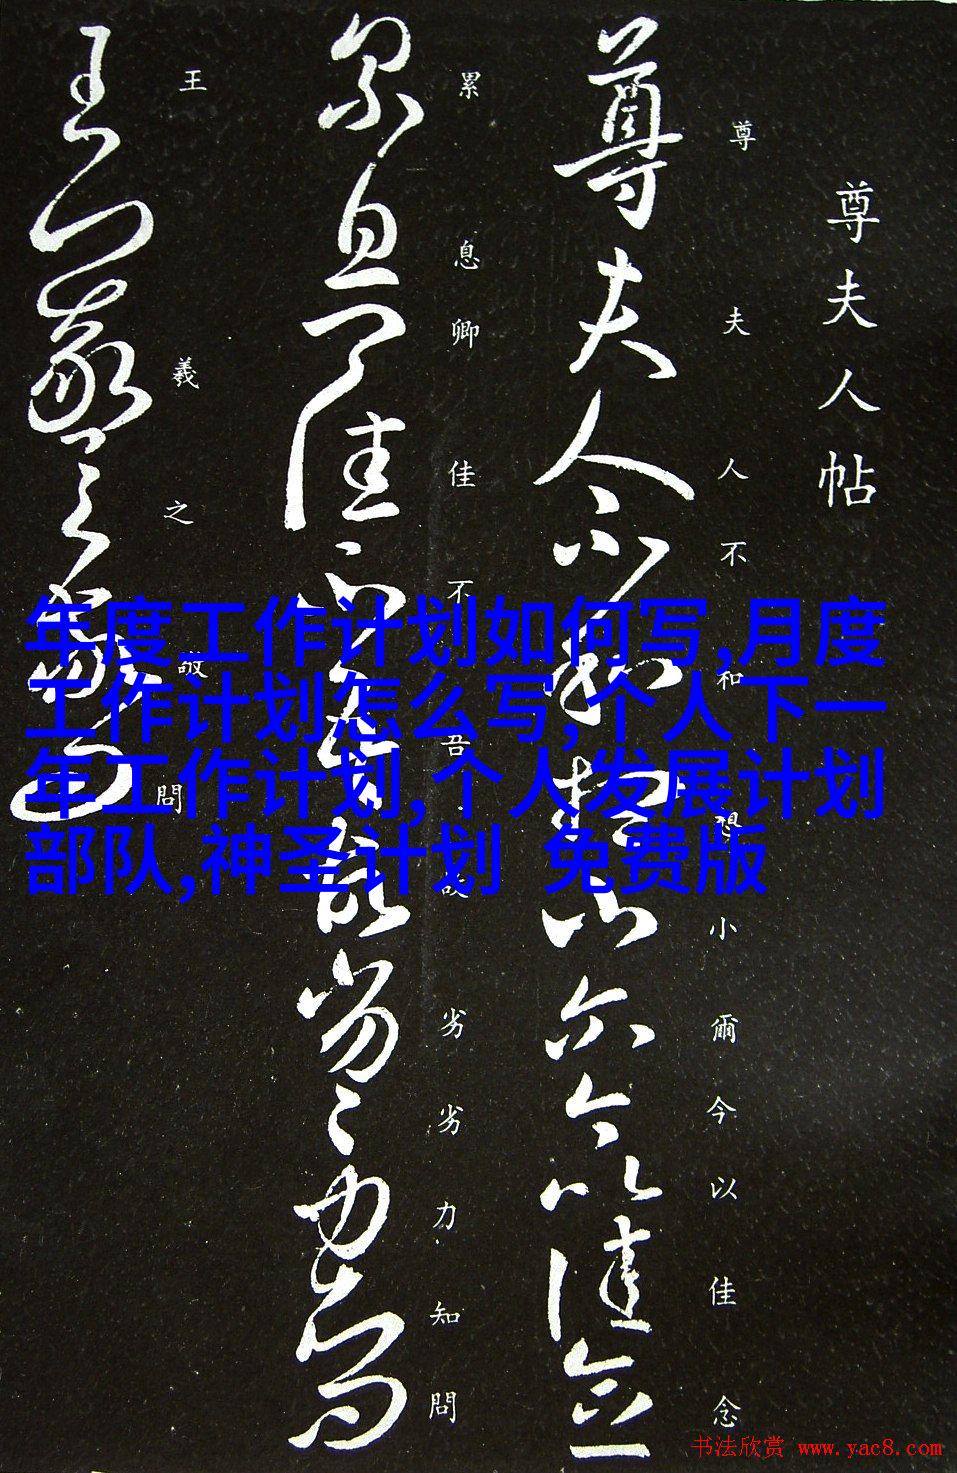 尊夫人帖
尊夫人不和想小爾今以佳念
累息卿佳不吾故劣劣力知問
王羲之敬問
年度工作计划如何写,月度
工作计划怎么写,个人下一
年工作计划,个人发展计划
部队,神圣计划 免费版
书法欣赏 www.yac8.com